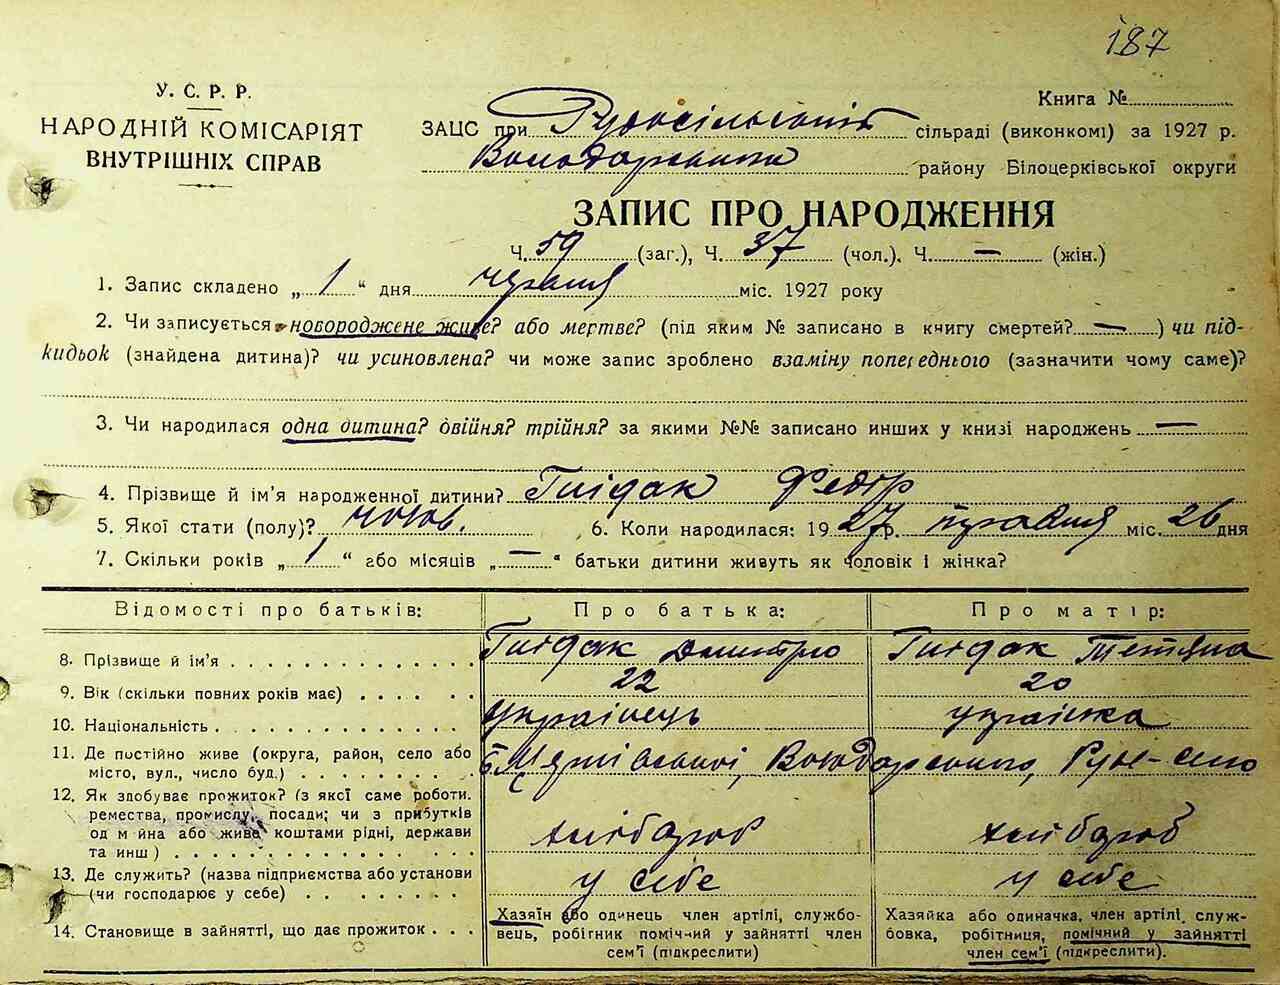 187
У. С. Р. Р.
НАРОДНІЙ КОМІСАРІЯТ
ВНУТРІШНІХ СПРАВ
Книга №
ЗАЦС при Рудосільській сільраді (виконкомі) за 1927 р.
Володарського району Білоцерківської округи
ЗАПИС ПРО НАРОДЖЕННЯ
Ч. 59 (заг.), Ч. 37 (чол.), Ч. — (жін.)
1. Запис складено „ 1 “ дня червня міс. 1927 року
2. Чи записується новороджене живе? або мертве? (під яким № записано в книгу смертей? — ) чи під-
кидьок (знайдена дитина)? чи усиновлена? чи може запис зроблено взаміну попереднього (зазначити чому саме)?
3. Чи народилася одна дитина? двійня? трійня? за якими №№ записано инших у книзі народжень —
4. Прізвище й ім'я народженної дитини? Гнідак Федір
5. Якої стати (полу)? чолов. 6. Коли народилася: 1927 р. травня міс. 26 дня
7. Скільки років „ 1 “ або місяців „ — “ батьки дитини живуть як чоловік і жінка?
Відомості про батьків: Про батька: Про матір:
8. Прізвище й ім'я Гнідак Дмитро Гнідак Тетяна
9. Вік (скільки повних років має) 22 20
10. Національність українець українка
11. Де постійно живе (округа, район, село або
місто, вул., число буд.) Б Церківської, Володарського, Руд-село
12. Як здобуває прожиток? (з якої саме роботи.
ремества, промислу, посади; чи з прибутків
од майна або живе коштами рідні, держави
та инш) хлібороб хлібороб
13. Де служить? (назва підприємства або установи
(чи господарює у себе) у себе у себе
14. Становище в зайнятті, що дає прожиток
Хазяїн або одинець член артілі, службо-
вець, робігник помічний у зайнятті член
сем'ї (підкреслити)
Хазяйка або одиначка, член артілі служ-
бовка, робітниця, помічний у зайнятті
член сем'ї (підкреслити).